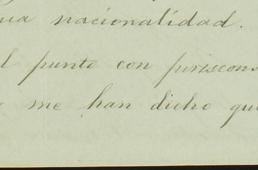 nacionalidad.
punto con juriscons
me han dicho que